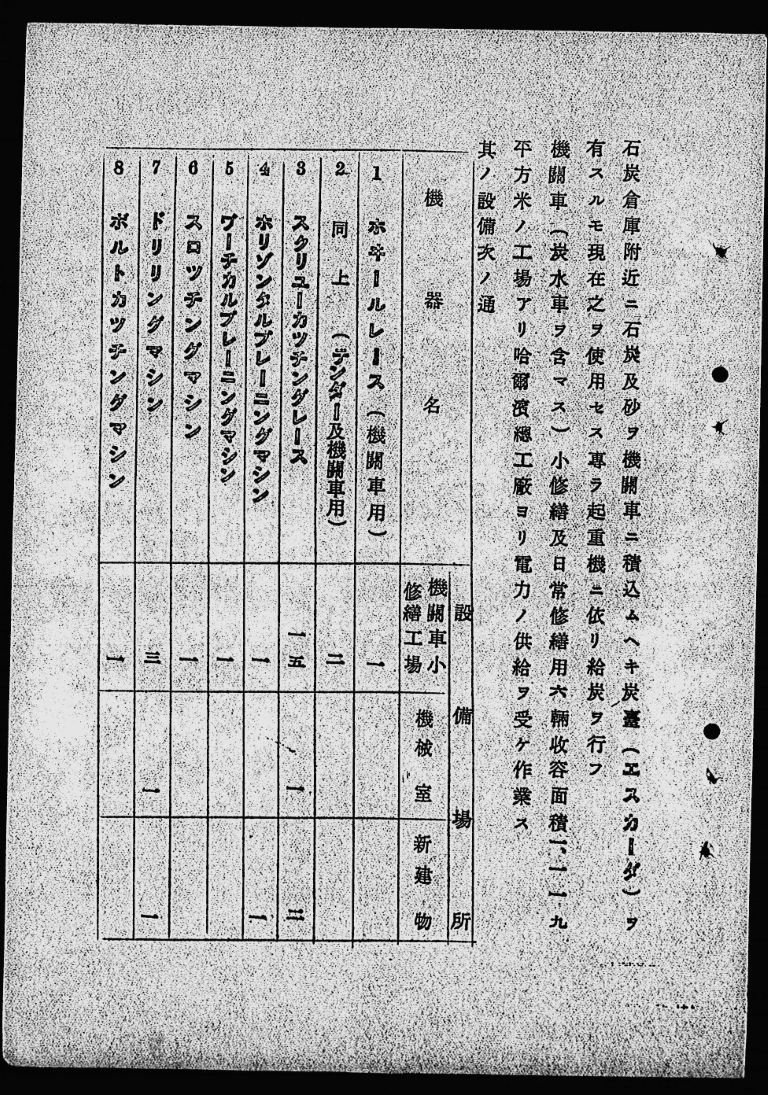 石炭倉庫附近ニ石炭及砂ヲ機關車ニ積込ムヘキ炭臺（エスカーダ）ヲ
有スルモ現在之ヲ使用セス專ラ起重機ニ依リ給炭ヲ行フ
機關車（炭水車ヲ含マス）小修繕及日常修繕用六輛收容面積一、一一九
平方米ノ工場アリ哈爾濱總工廠ヨリ電力ノ供給ヲ受ケ作業ス
其ノ設備次ノ通
機器名
設備場所
機關車小修繕工場
機械室
新建物
1 ホヰールレース（機關車用） 一
2 同上（テンダー及機關車用） 二
3 スクリユーカツチングレース 一五 一 二
4 ホリゾンタルプレーニングマシン 一 一
5 ワーチカルプレーニングマシン 一
6 スロツチングマシン 一
7 ドリリングマシン 三 一 一
8 ボルトカツチングマシン 一